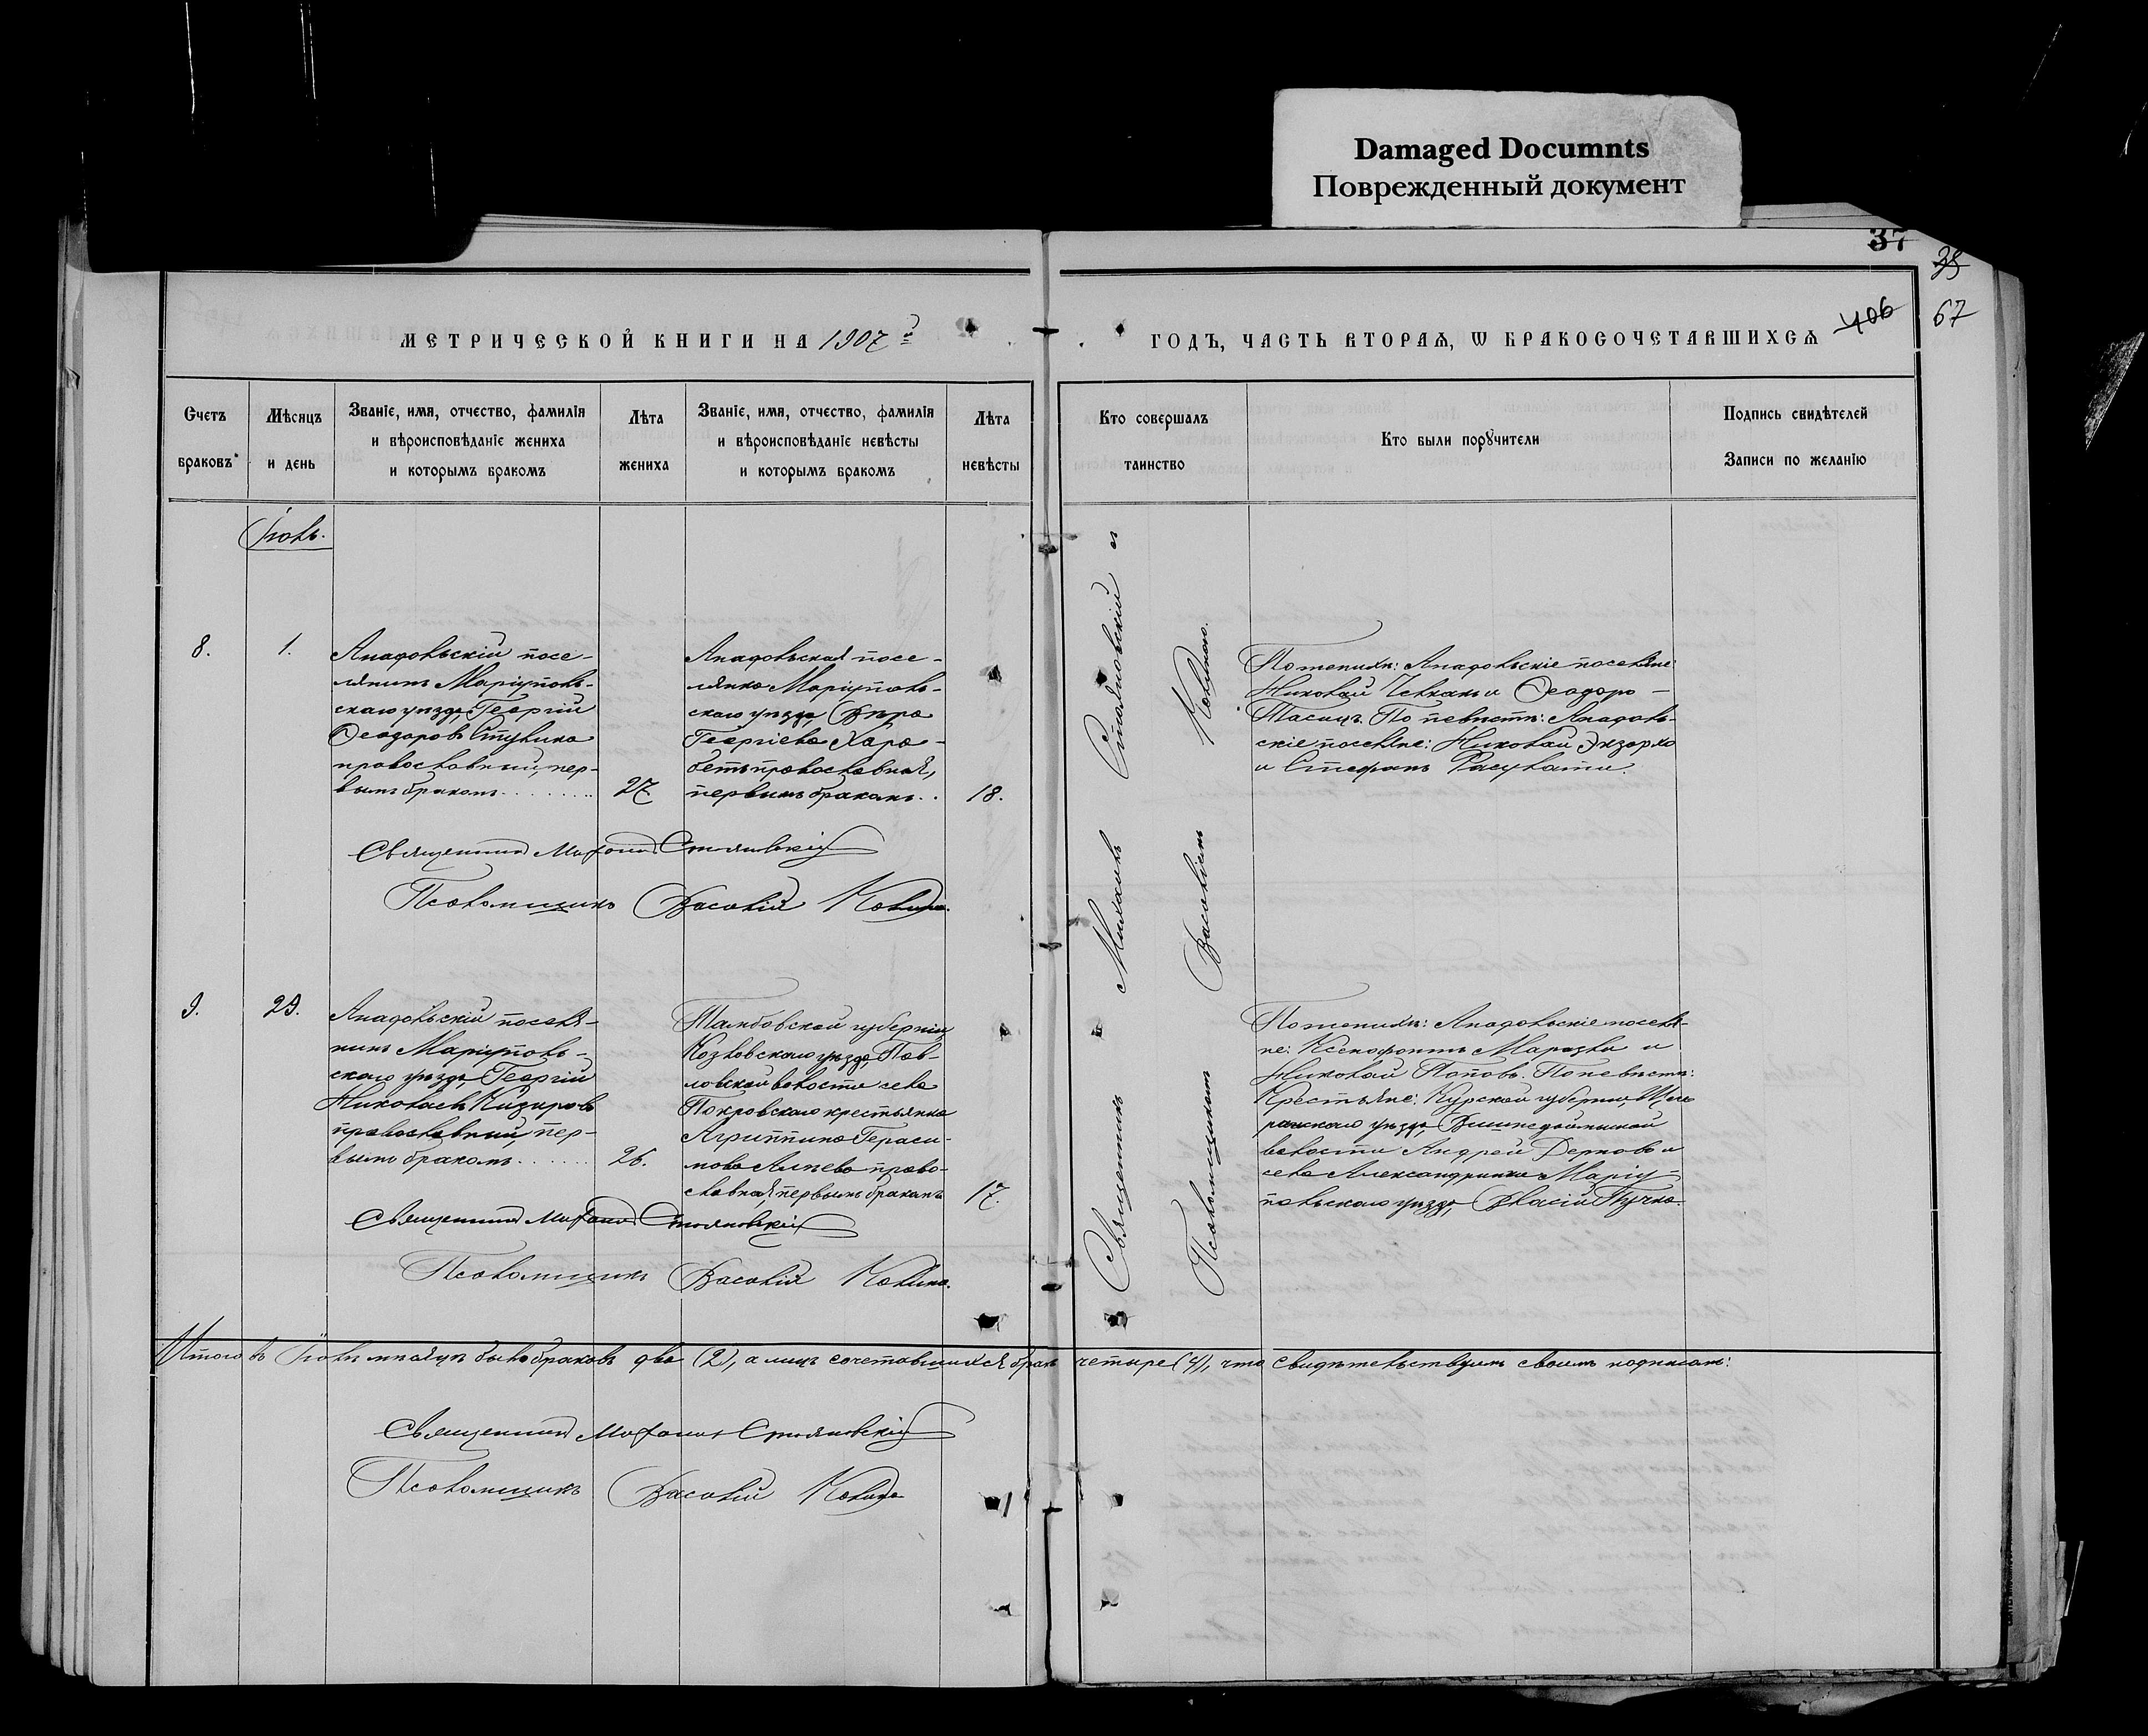 Damaged Documnts
Поврежденный документ
37
35
406
67
МЕТРИЧЕСКОЙ КНИГИ НА 1907 й
ГОДЪ, ЧАСТЬ ВТОРАѦ, Ѡ БРАКОСОЧЕТАВШИХСѦ
Счетъ браковъ
Мѣсяцъ и день
Званіе, имя, отчество, фамилія
и вѣроисповѣданіе жениха
и которымъ бракомъ
Лѣта жениха
Званіе, имя, отчество, фамилія
и вѣроисповѣданіе невѣсты
и которымъ бракомъ
Лѣта невѣсты
Кто совершалъ таинство
Кто были порꙋчители
Подпись свидѣтелей
Записи по желанію
Іюль.
8.
1.
Анадольскій посе-
лянинъ Маріуполь-
скаго уѣзда, Георгій
Ѳеодоровъ
православный, пер-
вымъ бракомъ
27
Анадольская посе-
лянка Маріуполь-
скаго уѣзда Вѣра
Георгіева Хара-
бетъ православная,
первымъ бракомъ
18.
По женихѣ: Анадольскіе поселяне:
Николай и Ѳеодоръ
Тасицъ. По невѣстѣ: Анадоль-
скіе поселяне: Николай Экзархо
и Стефанъ
Священникъ Стояновскій
Псаломщикъ Василій
9.
29.
Анадольскій поселя-
нинъ Маріуполь-
скаго уѣзда Георгій
Николаевъ
православный, пер-
вымъ бракомъ
26.
Тамбовской губерніи,
Козловскаго уѣзда, Пав-
ловской волости села
Покровскаго крестьянка
Агриппина Гераси-
мова право-
славная, первымъ бракомъ
17.
По женихѣ: Анадольскіе поселя-
не: Ксенофонтъ и
Николай Поповъ. По невѣстѣ:
Крестьяне: Курской губерніи,
уѣзда,
волости Андрей и
села Маріу-
польскаго уѣзда, Власій Пучко.
Священникъ Стояновскій
Псаломщикъ Василій
Священникъ Михаилъ Стояновскій съ
Псаломщикомъ Василіемъ
Итого въ Іюлѣ мѣсяцѣ было браковъ два (2), а лицъ сочетавшихся бракомъ четыре (4), что свидѣтельствуемъ своимъ подписомъ:
Священникъ Стояновскій
Псаломщикъ Василій